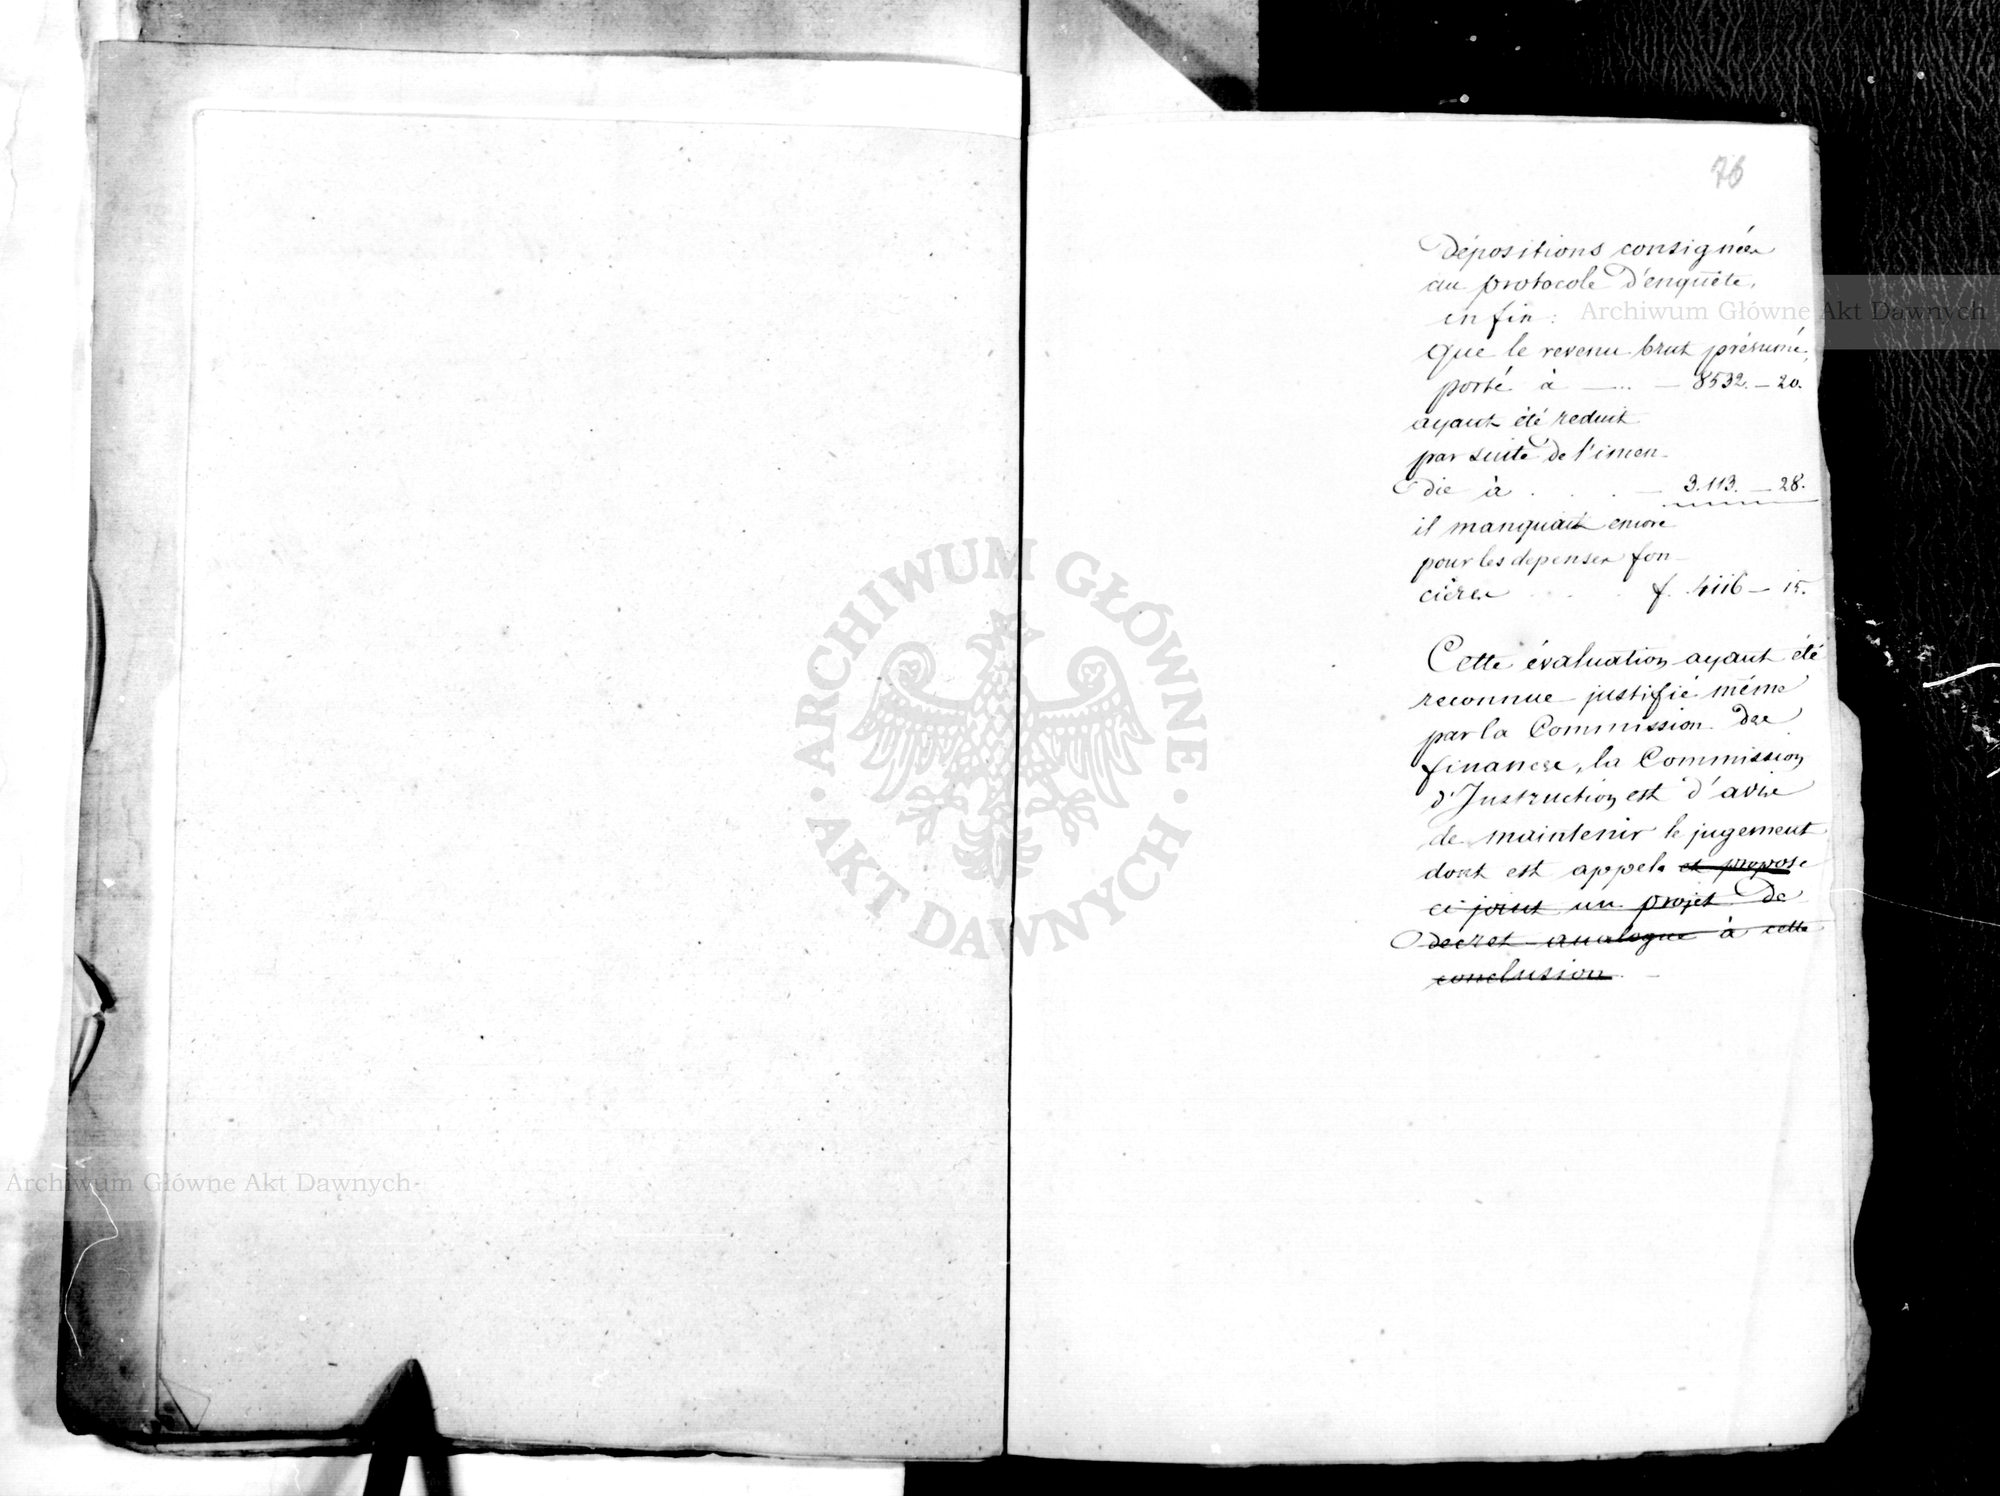 76
Dépositions consignées
au protocole d'enquête,
enfin:
que le revenu brut présumé,
porté à — 8532. — 20.
ayant été reduit
par suite de l'incen-
die à . . . — 3.113. — 28.
il manquait encore
pour les depenses fon-
cières . . . f. 4116 — 15.
Cette évaluation ayant été
reconnue justifié même
par la Commission des
finances, la Commission
d'Instruction est d'avis
de maintenir le jugement
dont est appel. et propose
ci joint un projet de
decret analogue à cette
conclusion. —
Archiwum Główne Akt Dawnych
ARCHIWUM GŁÓWNE · AKT DAWNYCH ·
Archiwum Główne Akt Dawnych